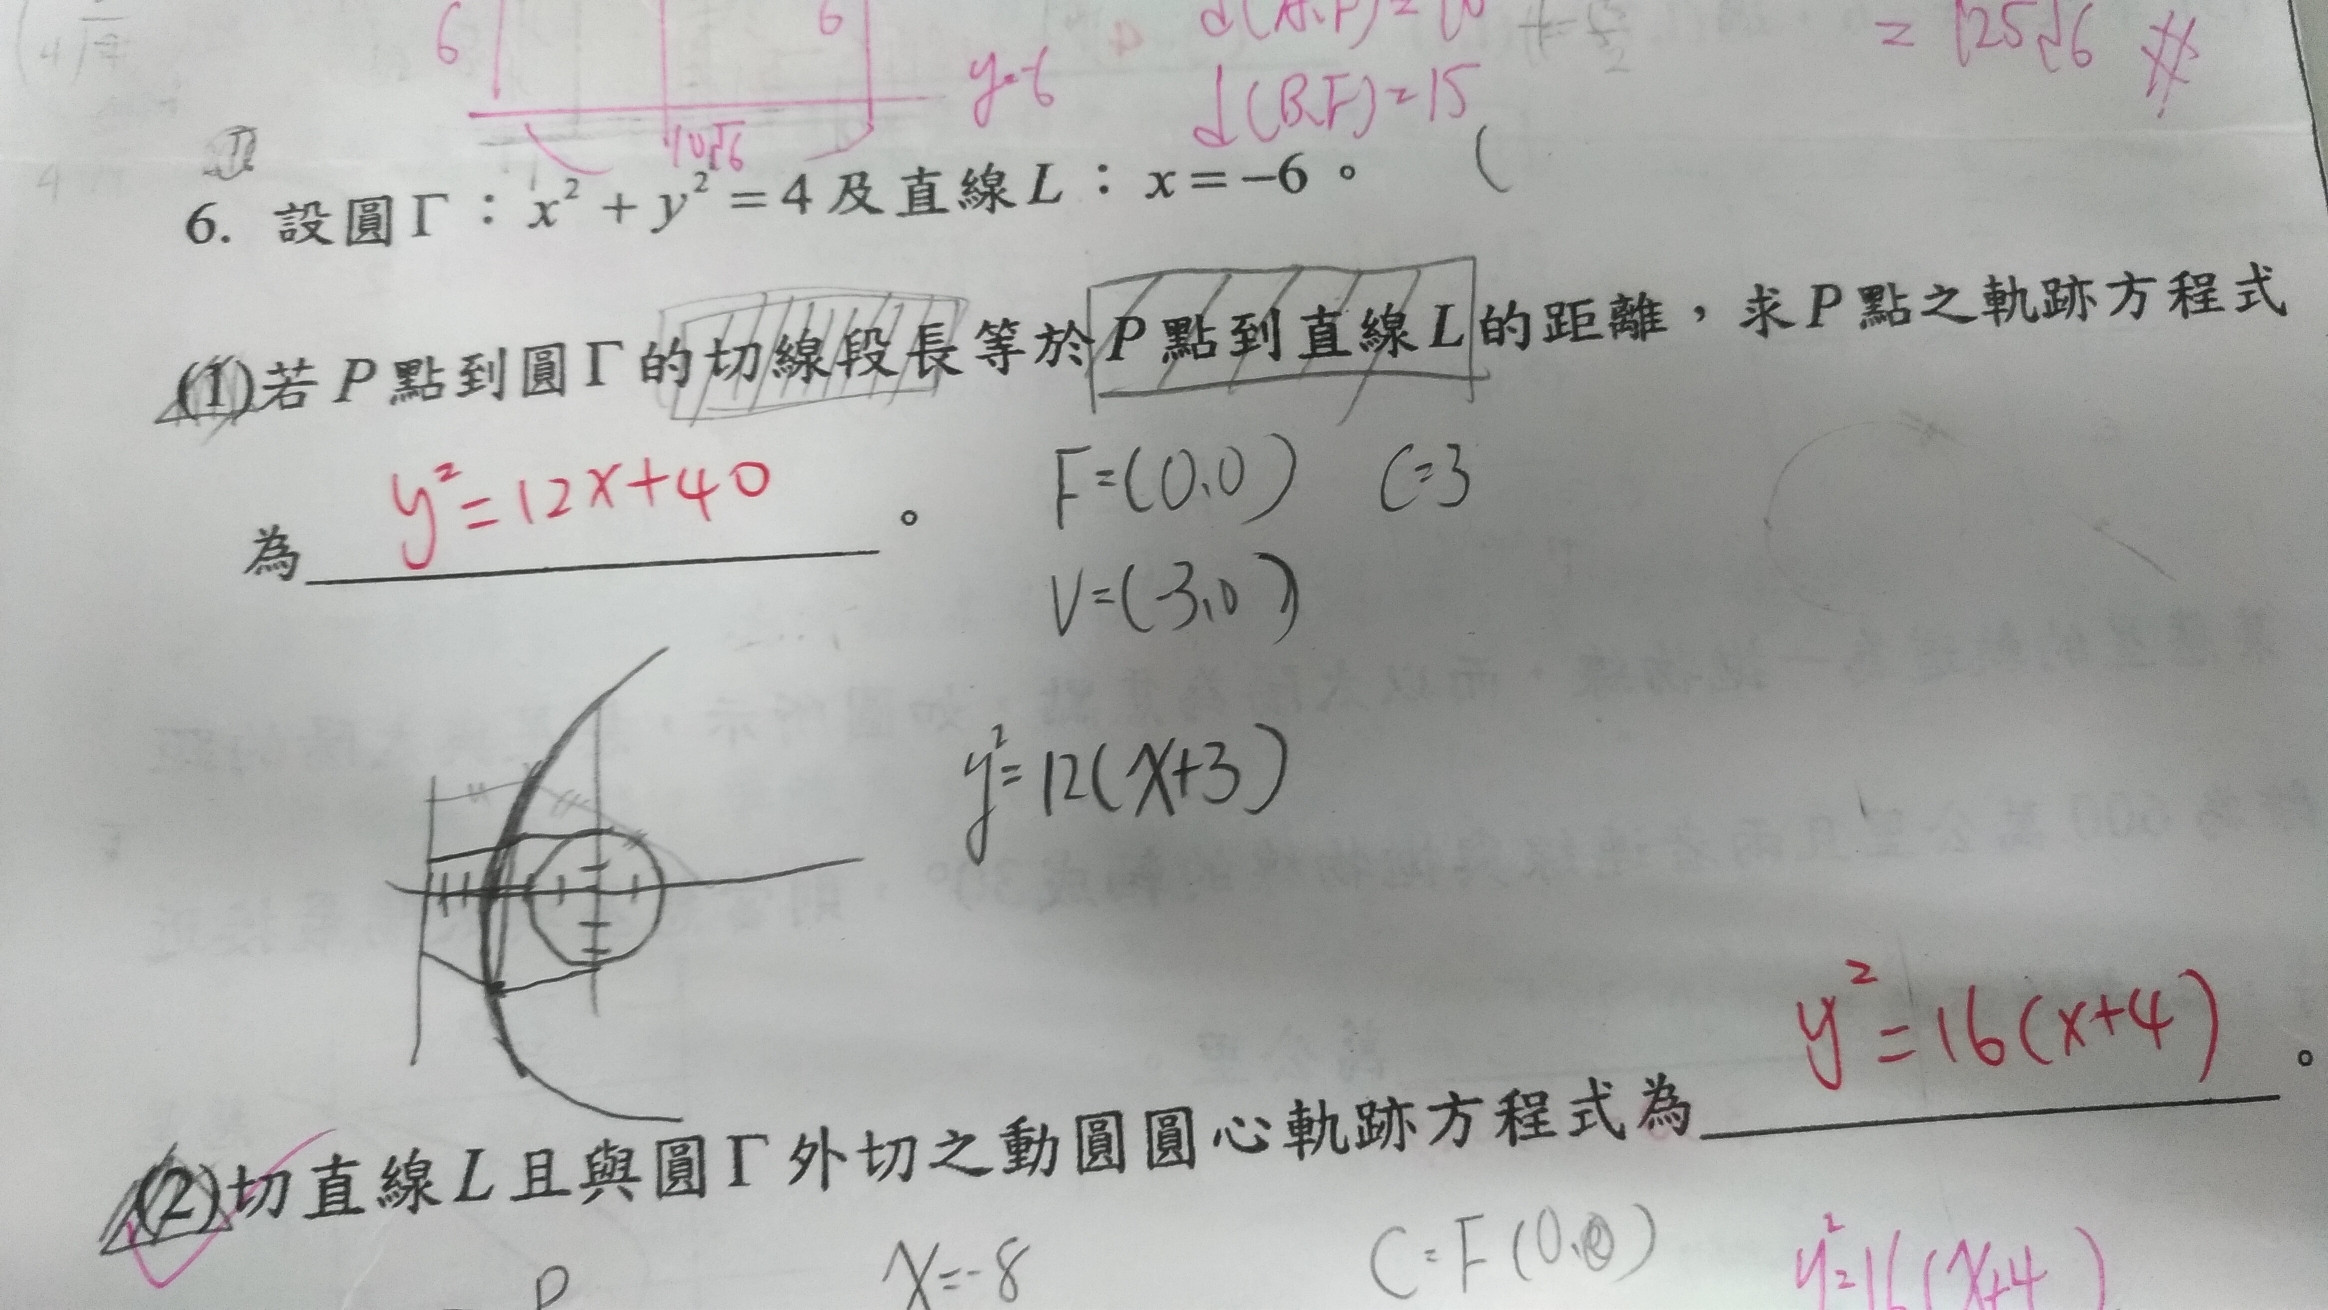 6 6 d(A,F)=10 =125√6 #
y=-6 d(B,F)=15
10√6
6. 設圓Γ：x²+y²=4及直線L：x=−6。
(1)若P點到圓Γ的切線段長等於P點到直線L的距離，求P點之軌跡方程式
為 y²=12x+40 。
F=(0,0) C=3
V=(-3,0)
y²=12(x+3)
(2)切直線L且與圓Γ外切之動圓圓心軌跡方程式為 y²=16(x+4) 。
P x=-8 C=F(0,0) y²=16(x+4)